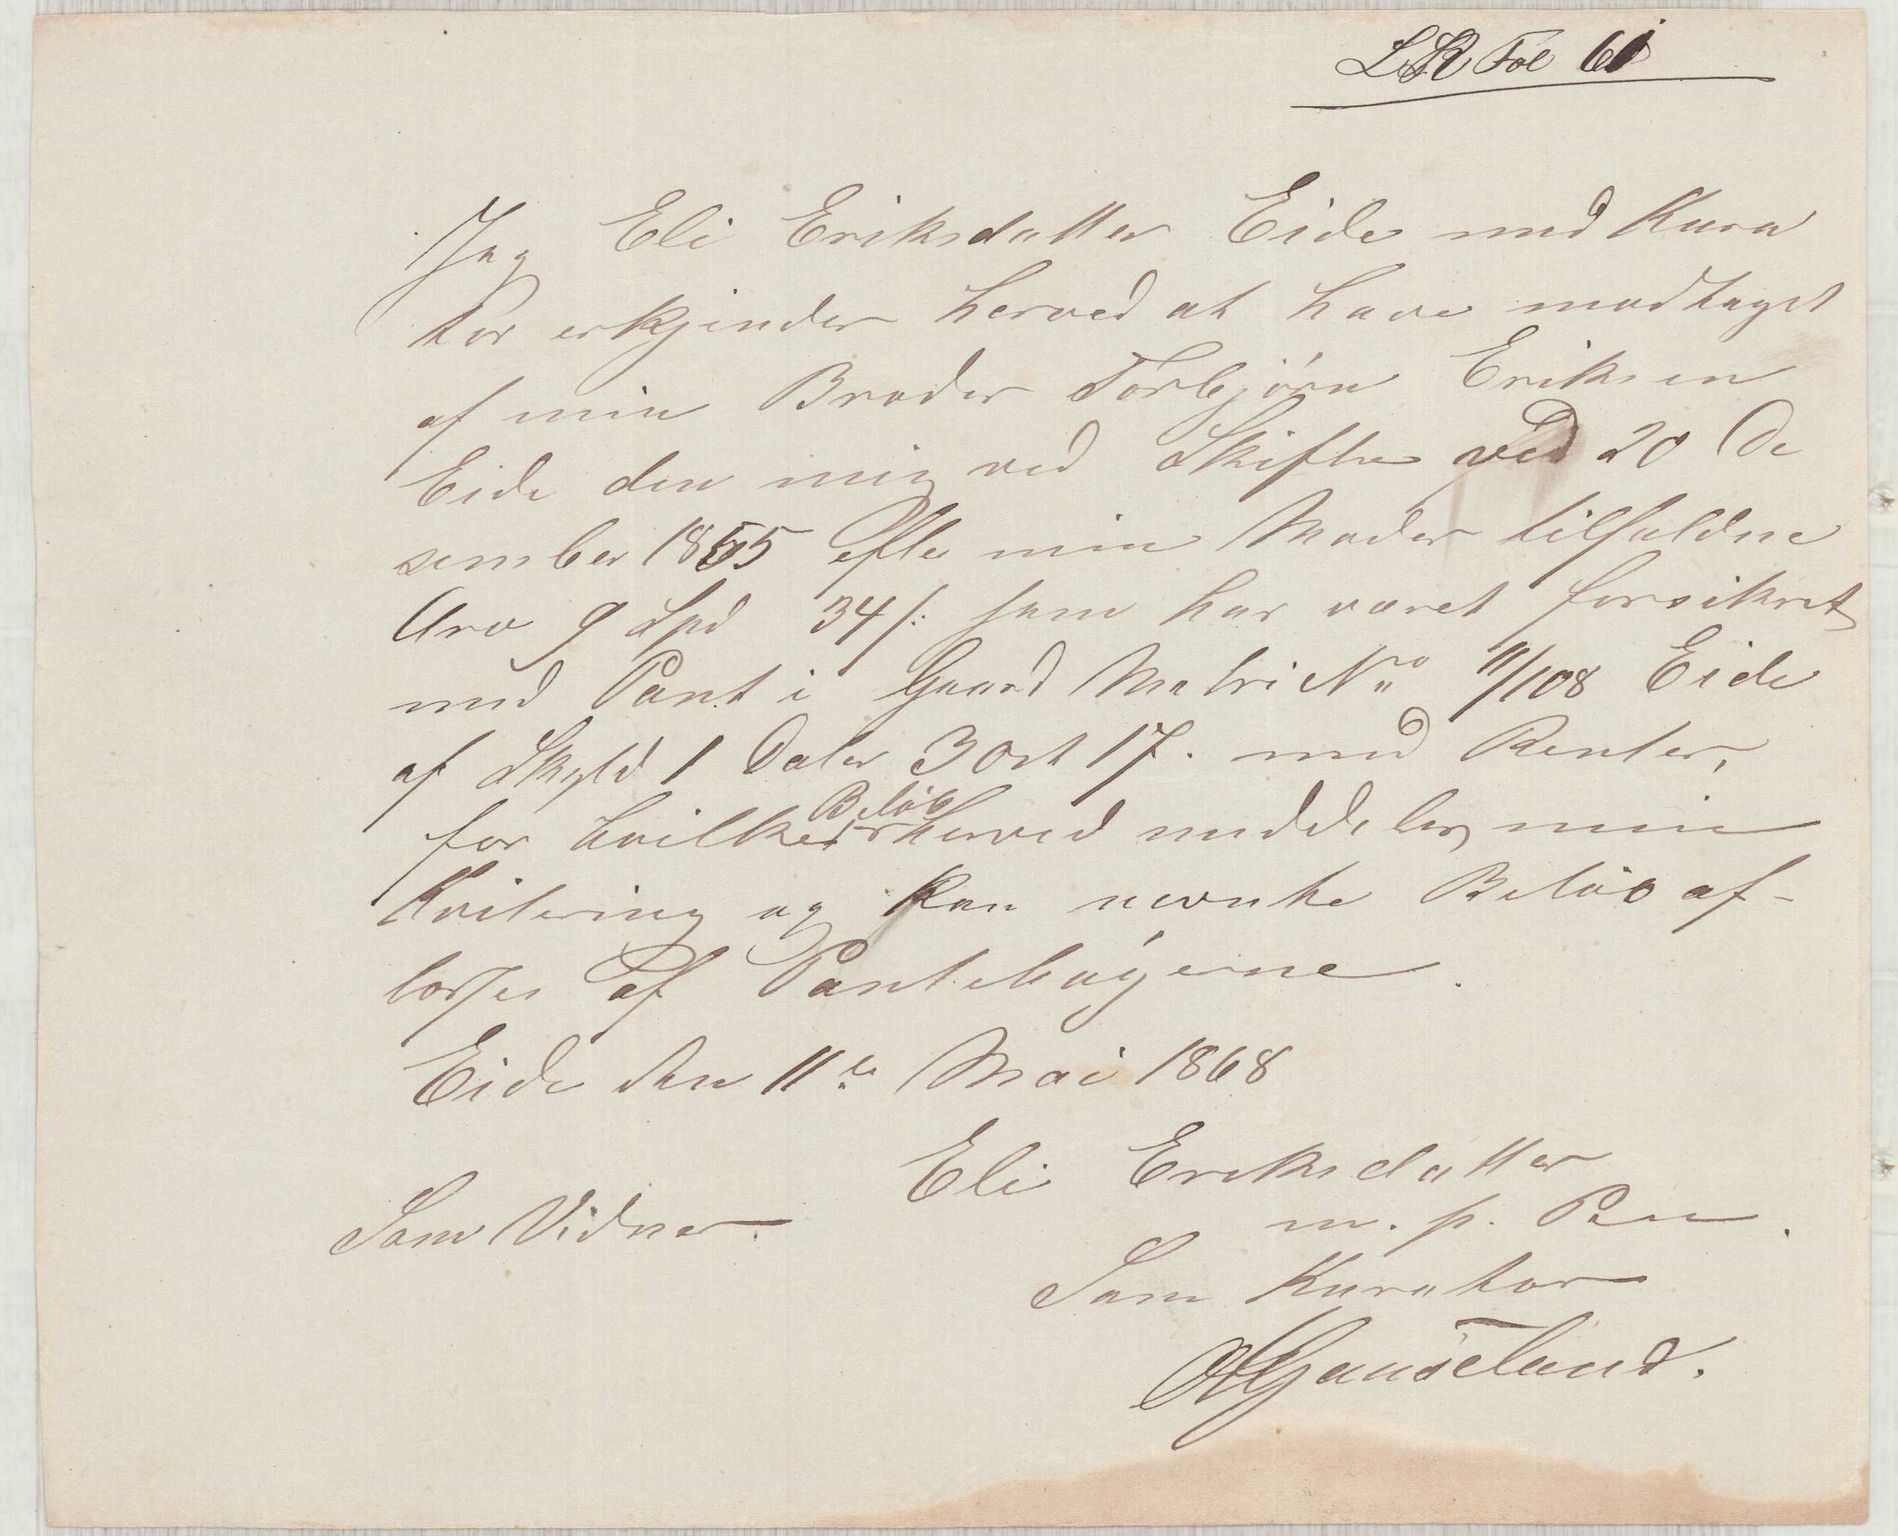 LR Fol 61
Jeg Eli Eriksdatter Eide med Kura
tor erkjender herved at have modtaget
af min Broder Torbjørn Eriksen
Eide den mig ved Skifte ved 20 De
sember 1855 efter min Moder tilfaldne
Arv 9 Spd 34 /: som har været forsikret
med Pant i Gaard Matr No 11/108 Eide
af Skyld 1 Daler 3 Ort 17. med Renter,
for hvilket Beløb herved meddeles min
Kvitering og kan nevnte Beløb af-
losses af Pantebøgerne.
Eide den 11te Mai 1868
Eli Eriksdatter
m. p. Pen.
Som Vidner.
Som Kurator